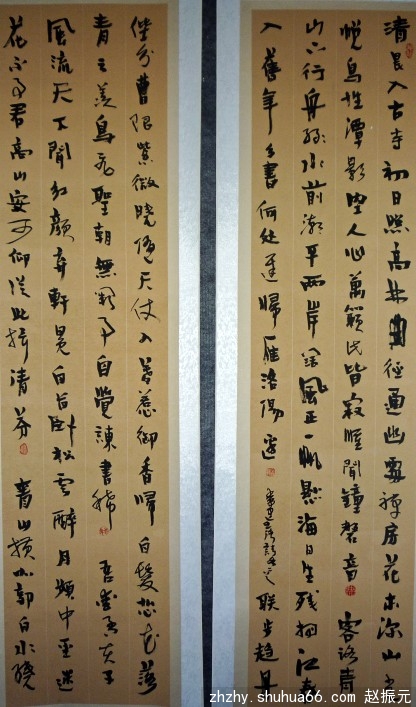 清晨入古寺初日照高林曲径通幽處禪房花木深山光
悦鳥性潭影空人心萬籟此皆寂惟聞鐘磬音 客路青
山下行舟绿水前潮平两岸阔風正一帆懸海日生残夜江春
入舊年乡書何处達歸雁洛陽邊 联步趋丹
陛分曹限紫微曉随天仗入暮惹御香歸白髮悲花落
青云羡鳥飛聖朝無闕事自覺諫書稀 吾愛孟夫子
風流天下聞红颜弃軒冕白首卧松雲醉月頻中聖迷
花不事君高山安可仰從此揖清芬 青山横北郭白水繞
zhzhy.shuhua66.com 赵振元